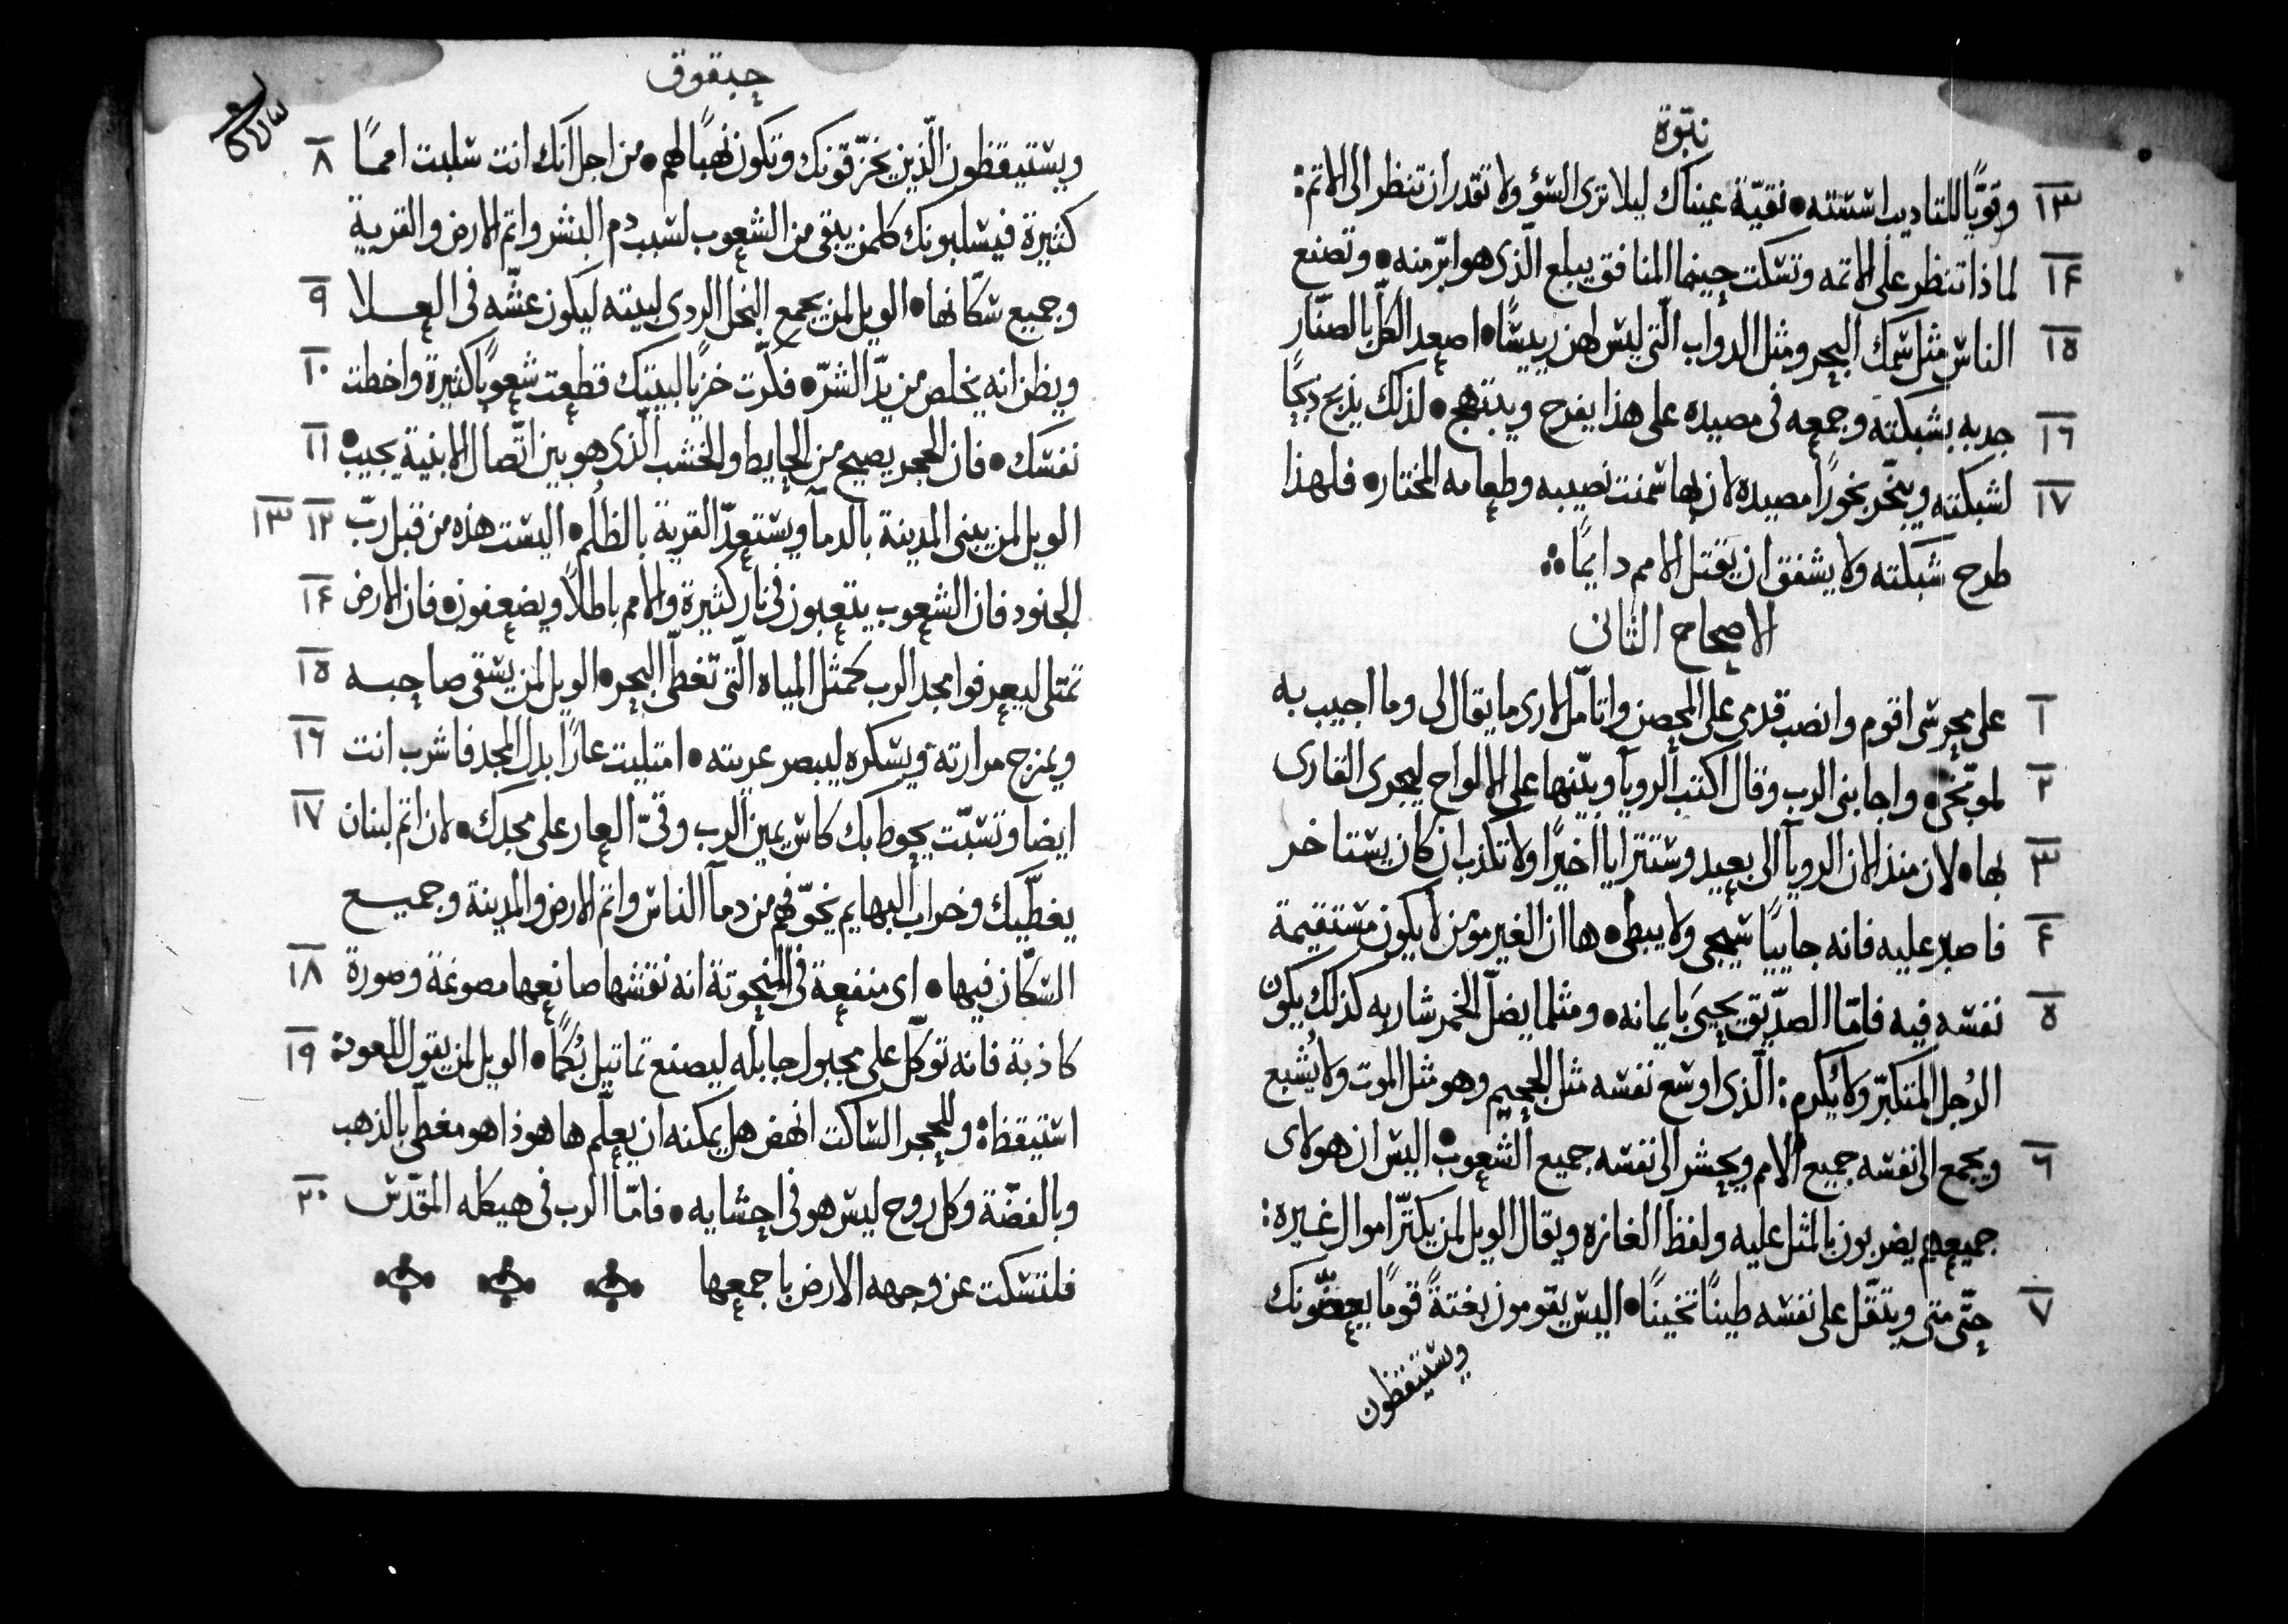 نبوّة
١٣ وقويًّا للتاديب اسّسته • نقيّة عيناك ليلا ترى السؤ ولا تقدر ان تنظر الى الاتم:
١٤ لماذا تنظر على الاتمه وتسكت حينما المنافق يبلع الّذى هو ابرّ منه • وتصنع
١٥ الناس مثل سمك البحر ومثل الدواب الّتى ليس لهن ريسًا • اصعد الكلّ بالصنّار
١٦ جدبه بشبكته وجمعه فى مصيده على هذا يفرح ويبتهج • لذلك يذبح ذبحًا
١٧ لشبكته ويبخّر بخورًا مصيده لان بها سمنت نصيبه وطعامه المختار • فلهذا
طرح شبكته ولا يشفق ان يقتل الامم دايمًا
الاصحاح الثانى
١ على محرسى اقوم وانصب قدمى على الحصن واتامّل لارى ما يقال لى وما اجيب به
٢ لموبّخى • واجابنى الرب وقال اكتب الرويا وبيّنها على الالواح ليجرى القارى
٣ بها • لان منذ الان الرويآ الى بعيد وستترايا اخيرًا ولا تكذب ان كان يستاخر
٤ فاصبر عليه فانه جاييًا سيجى ولا يبطى • ها ان الغير مومن لا يكون مستقيمة
٥ نفسه فيه فامّا الصدّيق يحيى بايمانه • ومثلما يضلّ الخمر شاربه كذلك يكون
الرجل المتكبّر ولا يُكرم: الّذى اوسع نفسه مثل الجحيم وهو مثل الموت ولا يُشبع
٦ ويجمع الى نفسه جميع الامم ويحشر الى نفسه جميع الشعوب • اليس ان هولاى
جميعهم يضربون بالمثل عليه ولفظ الغازه ويقال الويل لمن يكتّر اموال غيره:
٧ حتّى متى ويتقّل على نفسه طينًا تخينًا • اليس يقومون بغتةً قومًا يعضّونك
ويستيقظون
حبقوق
ويستيقظون الّذين يخزّقونك وتكون نهبًا لهم • من اجل انّك انت سلبت اممًا ٨
كثيرة فيسلبونك كلمن يبقى من الشعوب لسبب دم البشر واتم الارض والقرية
وجميع سكّانها • الويل لمن يجمع البخل الردى لبيته ليكون عشّه فى العلا ٩
ويظن انه يخلص من يدّ الشرّ • فكّرت خزيا لبيتك قطعت شعوبًا كثيرة واخطت ١٠
نفسك • فان الحجر يصيح من الحايط والخشب الّذى هو بين اتّصال الابنية يجيب • ١١
الويل لمن يبنى المدينة بالدمآ ويستعدّ القرية بالظلم • اليست هذه من قبل ربّ ١٢ ١٣
الجنود فان الشعوب يتعبون فى نار كثيرة والامم باطلًا ويضعفون • فان الارض ١٤
تمتلى ليعرفوا مجد الرب كمثل المياه الّتى تغطّى البحر • الويل لمن يسقى صاحبه ١٥
ويمزج مرارته ويسكره ليبصر عريته • امتليت عارًا بدل المجد فاشرب انت ١٦
ايضا وتسبّت يحوط بك كاس يمين الرب وقىّ العار على مجدك • لان اتم لبنان ١٧
يغطّيك وخراب البهايم يخوّفهم من دمآ الناس واتم الارض والمدينة وجميع
السكّان فيها • اى منفعة فى المنحوتة انه نقشها صانعها مصوغة وصورة ١٨
كاذبة فانه توكّل على مجبول جابله ليصنع تماتيل بُكمًا • الويل لمن يقول للعود: ١٩
استيقظ: وللحجر الساكت انهض هل يمكنه ان يعلّم ها هوذا هو مغطّى بالذهب
وبالفضّة وكل روح ليس هو فى احشايه • فامّا الرب فى هيكله المقدّس ٢٠
فلتسكت عن وجهه الارض باجمعها